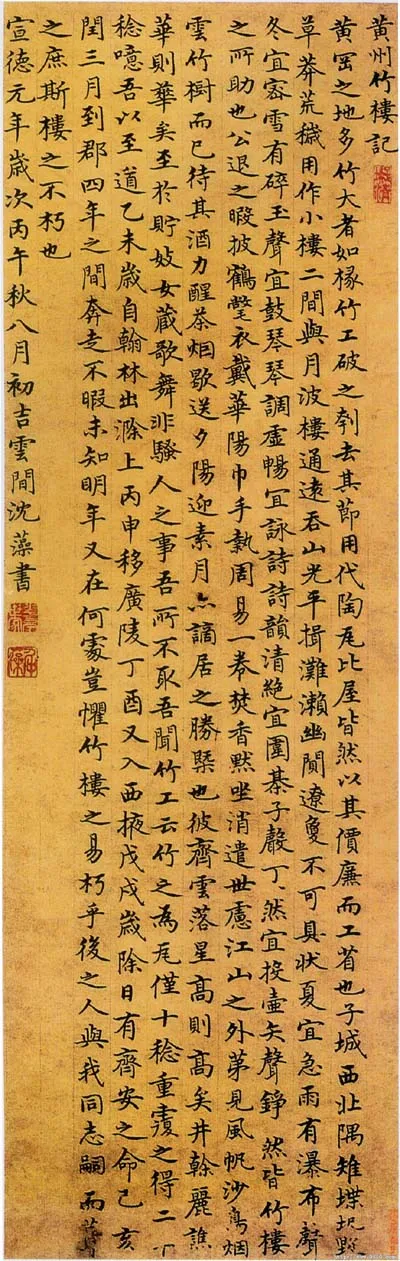 黃州竹樓記
黃岡之地多竹大者如椽竹工破之刳去其節用代陶瓦比屋皆然以其價廉而工省也子城西北隅雉堞圮毀
草莽荒穢用作小樓二間與月波樓通遠吞山光平挹灘瀨幽闃遼敻不可具狀夏宜急雨有瀑布聲
冬宜密雪有碎玉聲宜鼓琴琴調虛暢宜詠詩詩韻清絕宜圍棊子聲丁〻然宜投壺矢聲錚〻然皆竹樓
之所助也公退之暇披鶴氅衣戴華陽巾手執周易一卷焚香默坐消遣世慮江山之外第見風帆沙鳥烟
雲竹樹而已待其酒力醒茶烟歇送夕陽迎素月亦謫居之勝槩也彼齊雲落星高則高矣井幹麗譙
華則華矣至於貯妓女藏歌舞非騷人之事吾所不取吾聞竹工云竹之為瓦僅十稔重覆之得二十
稔噫吾以至道乙未歲自翰林出滁上丙申移廣陵丁酉又入西掖戊戌歲除日有齊安之命己亥
閏三月到郡四年之間奔走不暇未知明年又在何處豈懼竹樓之易朽乎後之人與我同志嗣而葺
之庶斯樓之不朽也
宣德元年歲次丙午秋八月初吉雲間沈藻書